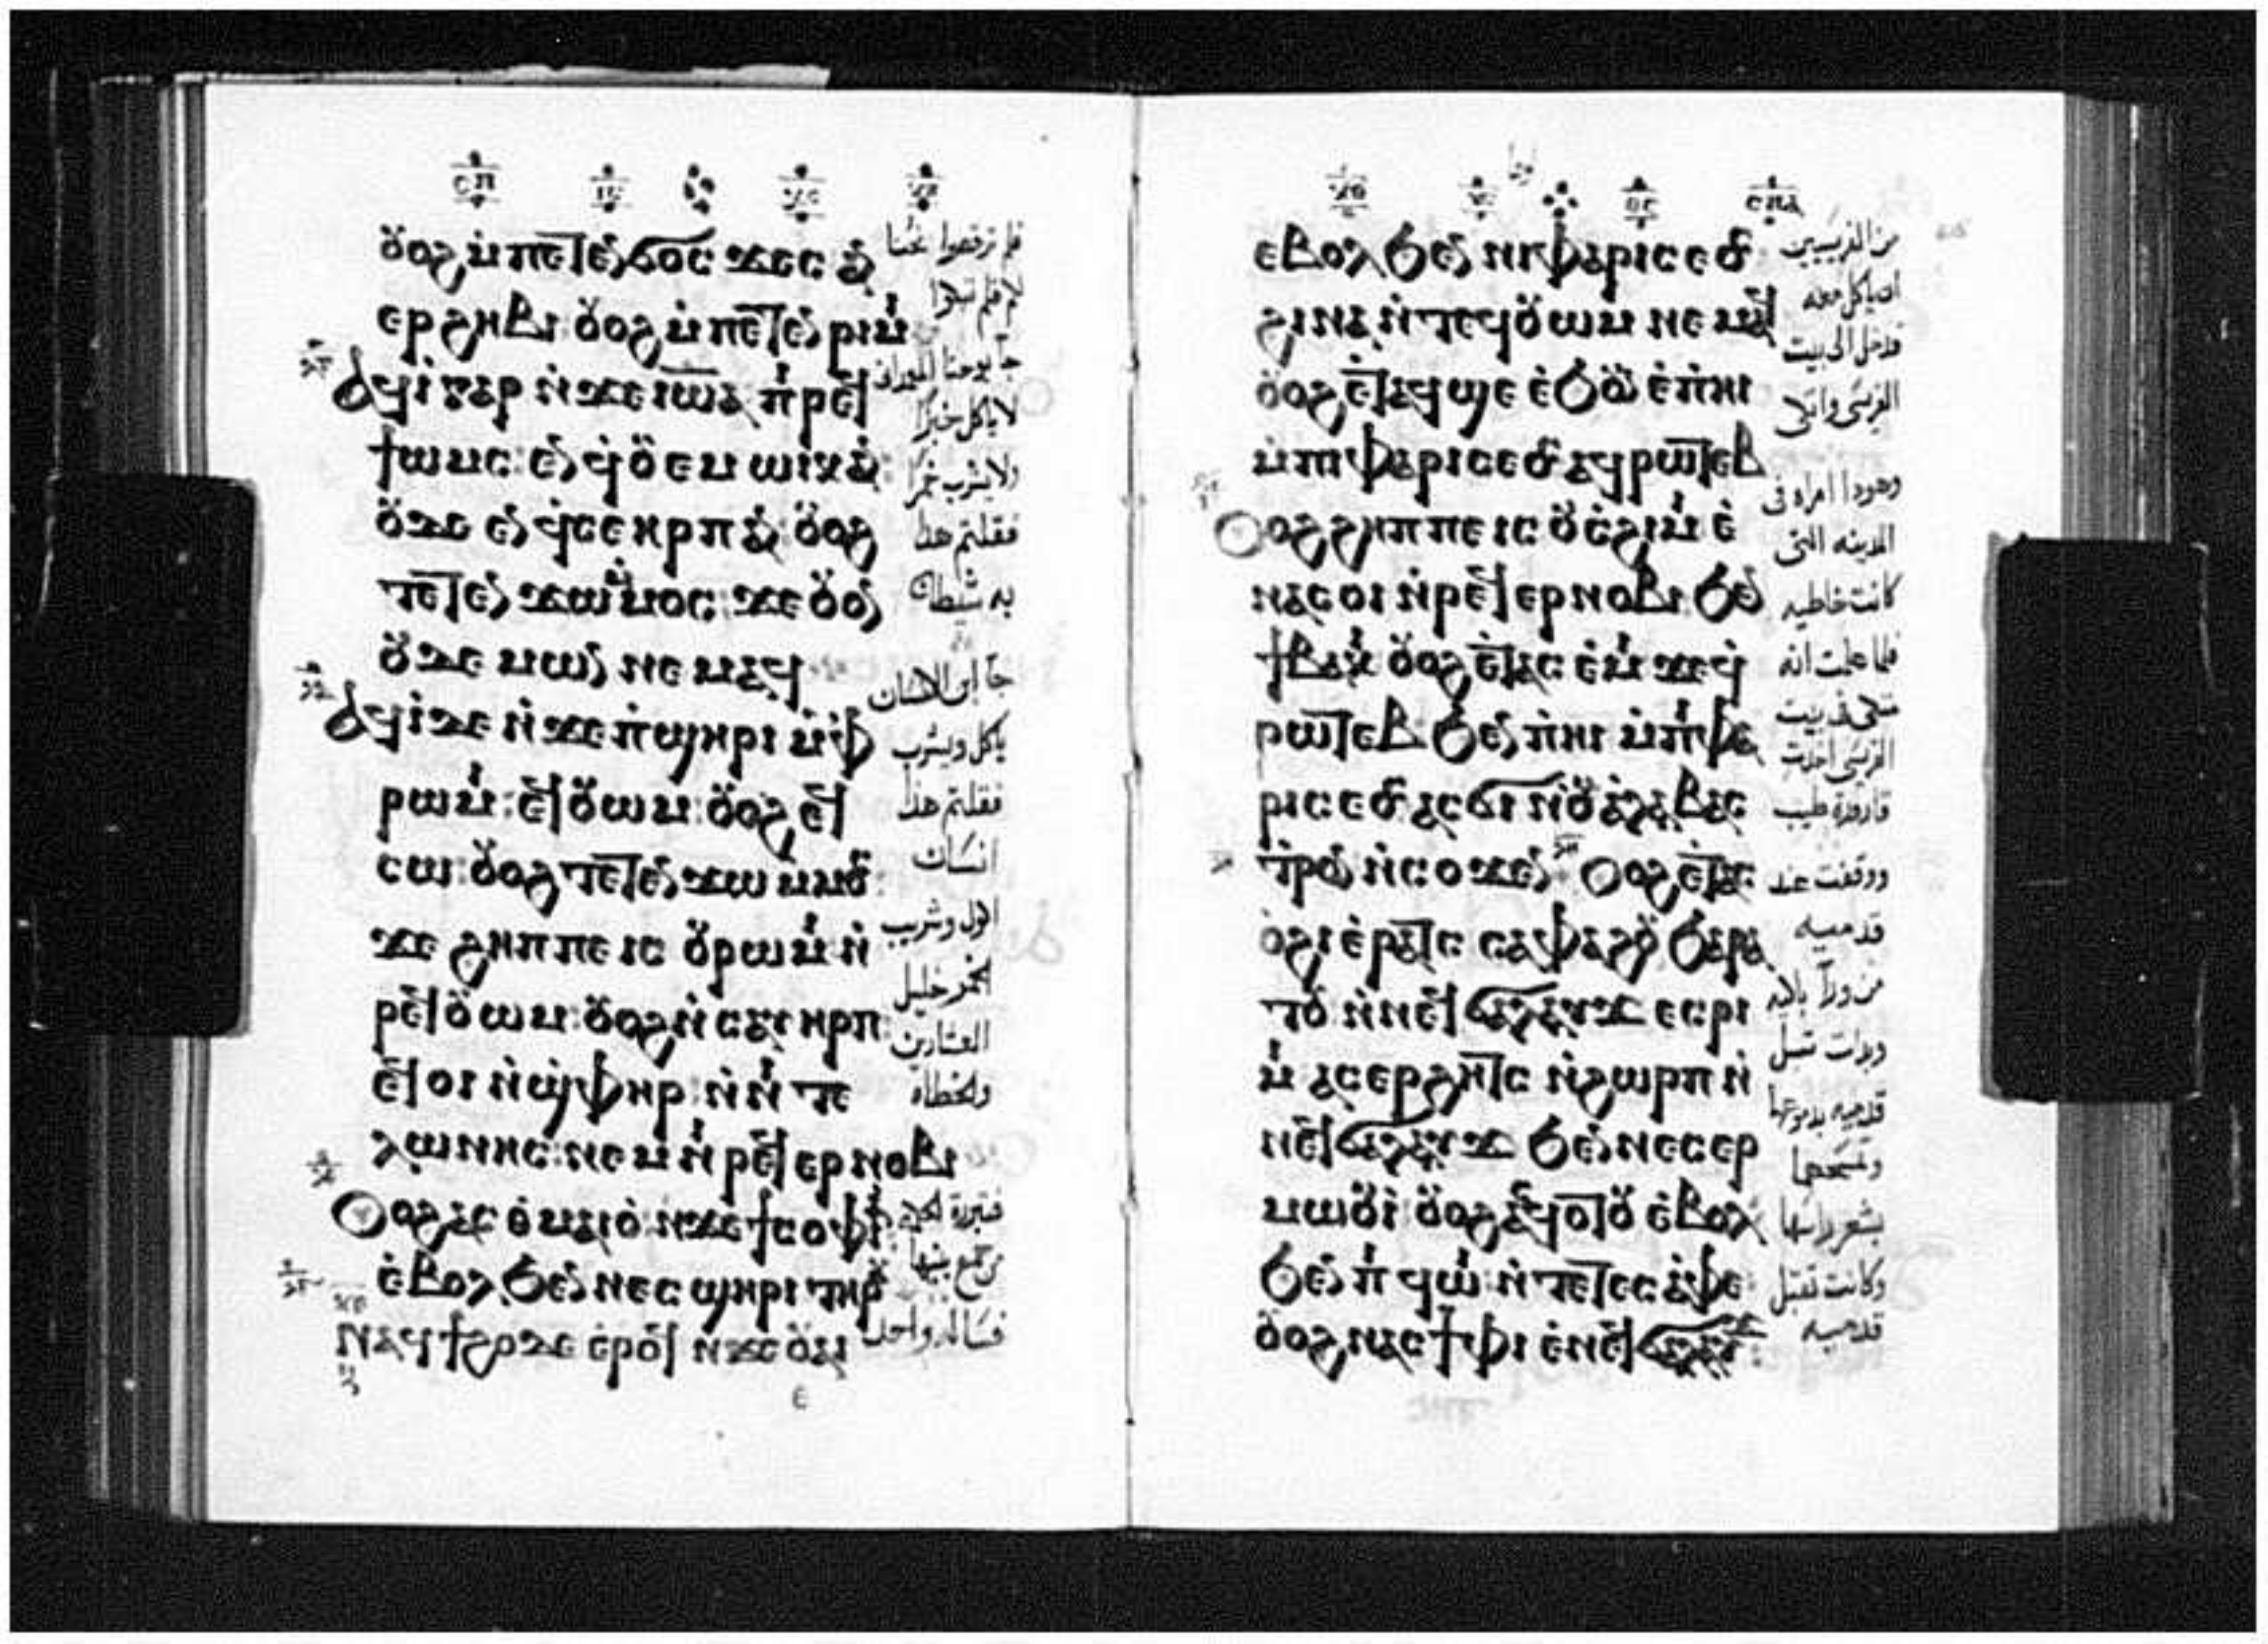 ⲟⲩⲟϩ ⲙ̇ⲡⲉⲧⲉⲛϭⲟⲥϫⲉⲥ ⲁⲛ
ⲉⲣϩⲏⲃⲓ ⲟⲩⲟϩ ⲙ̇ⲡⲉⲧⲉⲛⲣⲓⲙⲓ
ⲁϥⲓ̇ ⲅⲁⲣ ⲛ̇ϫⲉ ⲓⲱⲁ ⲡⲓⲣⲉϥ
ϯⲱⲙⲥ: ⲉⲛϥ̇ⲟⲩⲉⲙ ⲱⲓⲕ ⲁⲛ:
ⲟⲩⲇⲉ ⲉⲛϥ̇ⲥⲉ ⲏⲣⲡ ⲁⲛ: ⲟⲩⲟϩ
ⲧⲉⲧⲉⲛϫⲱⲙ̇ⲙⲟⲥ: ϫⲉ ⲟⲩⲟⲛ
ⲟⲩⲇⲉⲙⲱⲛ ⲛⲉⲙⲁϥ
ⲁϥⲓ̇ ⲇⲉ ⲛ̇ϫⲉ ⲡ̇ϣⲏⲣⲓ ⲙ̇ⲫ
ⲣⲱⲙⲓ: ⲉϥⲟⲩⲱⲙ: ⲟⲩⲟϩ ⲉϥ
ⲥⲱ: ⲟⲩⲟϩ ⲧⲉⲧⲉⲛϫⲱ ⲙⲙⲟⲥ:
ϫⲉ ϩⲏⲡⲡⲉ ⲓⲥ ⲟⲩⲣⲱⲙⲓ ⲛ̇
ⲣⲉϥⲟⲩⲱⲙ: ⲟⲩⲟϩ ⲛ̇ⲥⲁⲩⲏⲣⲡ:
ⲉϥⲟⲓ ⲛ̇ϣ̇ⲫⲏⲣ: ⲛ̇ⲛⲓ ⲧⲉ
ⲗⲱⲛⲏⲥ: ⲛⲉⲙ ⲛⲓⲣⲉϥⲉⲣⲛⲟⲃⲓ
ⲟⲩⲟϩ ⲁⲥⲑⲙⲁⲓⲟ̇ ⲛ̇ϫⲉ ϯⲥⲟⲫⲓⲁ
ⲉ̇ⲃⲟⲗ ϧⲉⲛ ⲛⲉⲥϣⲏⲣⲓ ⲧⲏⲣⲟⲩ
ⲛⲁϥϯϩⲟ ⲇⲉ ⲉ̇ⲣⲟϥ ⲛ̇ϫⲉ ⲟⲩⲁⲓ
فلم ترقصوا نحنا
لكم فلم تبكوا
جا يوحنا المعمدان
لا ياكل خبزا
ولا يشرب خمرا
فقلتم هذا
به شيطان
جا ابن الانسان
ياكل ويشرب
فقلتم هذا
انسان
اكول وشريب
الخمر خليل
العشارين
والخطاه
فتبررة الحكمة
من جميع بنيها
فساله واحد
ⲉⲃⲟⲗ ϧⲉⲛ ⲛⲓⲫⲁⲣⲓⲥⲉⲟⲥ
ϩⲓⲛⲁ ⲛ̇ⲧⲉϥⲟⲩⲱⲙ ⲛⲉⲙⲁϥ
ⲟⲩⲟϩ ⲉ̇ⲧⲁϥϣⲉ ⲉ̇ϧⲟⲩⲛ ⲉ̇ⲡ̇ⲏⲓ
ⲙ̇ⲡⲓⲫⲁⲣⲓⲥⲉⲟⲥ ⲁϥⲣⲱⲧⲉⲃ
ⲟⲩⲟϩ ϩⲏⲡⲡⲉ ⲓⲥ ⲟⲩⲥ̇ϩⲓⲙⲓ ⲉ̇
ⲛⲁⲥⲟⲓ ⲛ̇ⲣⲉϥⲉⲣⲛⲟⲃⲓ ϧⲉⲛ
ϯⲃⲁⲕⲓ ⲟⲩⲟϩ ⲉ̇ⲧⲁⲥⲉ̇ⲙⲓ ϫⲉ ϥ̇
ⲣⲱⲧⲉⲃ ϧⲉⲛ ⲡ̇ⲏⲓ ⲙ̇ⲡⲓⲫⲁ
ⲣⲓⲥⲉⲟⲥ ⲁⲥϭⲓ ⲛ̇ⲟⲩⲁⲗⲁⲃⲁⲥ
ⲧⲣⲟⲛ ⲛ̇ⲥⲟϫⲉⲛ ⲟⲩⲟϩ ⲉ̇ⲧⲁⲥ
ⲟ̇ϩⲓ ⲉ̇ⲣⲁⲧⲥ ⲥⲁⲫⲁϩⲟⲩ ϧⲁⲣⲁ
ⲧⲟⲩ ⲛ̇ⲛⲉϥϭⲁⲗⲁⲩϫ ⲉⲥⲣⲓ
ⲙⲓ ⲁⲥⲉⲣϩⲏⲧⲥ ⲛ̇ϩⲱⲣⲡ ⲛ̇
ⲛⲉϥϭⲁⲗⲁⲩϫ ϧⲉⲛ ⲛⲉⲥⲉⲣ
ⲙⲱⲟⲩⲓ̇ ⲟⲩⲟϩ ⲁⲥϥⲟⲧⲟⲩ ⲉ̇ⲃⲟⲗ
ϧⲉⲛ ⲡⲓϥⲱⲓ ⲛ̇ⲧⲉ ⲧⲉⲥⲁ̇ⲫⲉ
ⲟⲩⲟϩ ⲛⲁⲥϯⲫⲓ ⲉ̇ⲛⲉϥϭⲁⲗⲁⲩϫ
من الفريسيين
ان ياكل معه
فدخل الى بيت
الفريسى واتكى
وهوذا امراه فى
المدينه التى
كانت خاطيه
فلما علمت انه
متكى فى بيت
الفريسى اخذت
قارورة طيب
ووقفت عند
قدميه
من ورآ باكيه
وبدات تبل
قدميه بدموعها
وتمسحها
بشعر راسها
وكانت تقبل
قدميه